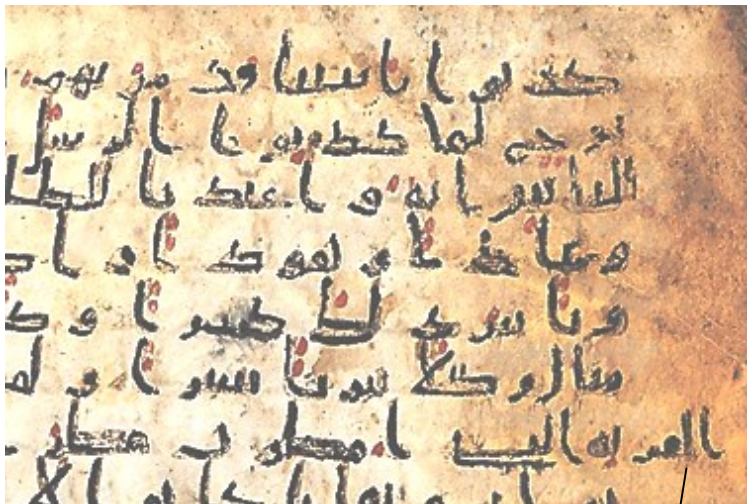 كذبوا بايتنا فدمرنهم
نوح لما كذبوا الرسل
للناس اية واعتدنا للظ
وعادا وثمودا وا
ونا بين ذلك كثيرا وك
مثال وكلا تبرنا تتبيرا ول
القرية التي امطرت مطر